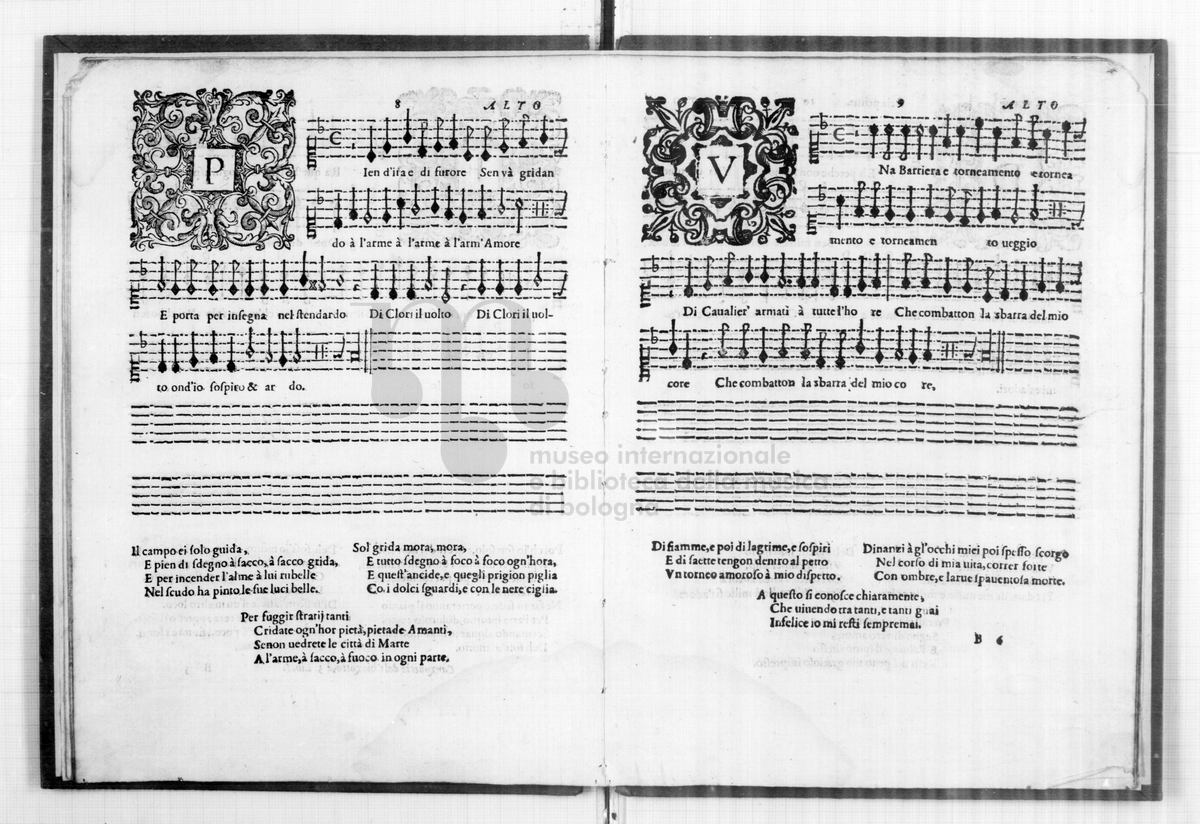 8 ALTO
P
Ien d'ira e di furore Sen và gridan
do à l'arme à l'arme à l'arm' Amore
E porta per insegna nel stendardo Di Clori il uolto Di Clori il uol-
to ond'io sospiro & ar do.
Il campo ei solo guida,
E pien di sdegno à sacco, à sacco grida,
E per incender l'alme à lui rubelle
Nel scudo ha pinto, le sue luci belle.
Sol grida mora, mora,
E tutto sdegno à foco à foco ogn'hora,
E quest'ancide, e quegli prigion piglia
Co i dolci sguardi, e con le nere ciglia.
Per fuggir stratij tanti
Cridate ogn'hor pietà, pietade Amanti,
Se non uedrete le città di Marte
A l'arme, à sacco, à fuoco in ogni parte.
9 ALTO
V
Na Barriera e torneamento e tornea
mento e torneamen to ueggio
Di Caualier' armati à tutte l'ho re Che combatton la sbarra del mio
core Che combatton la sbarra del mio co re,
Di fiamme, e poi di lagrime, e sospiri
E di saette tengon dentro al petto
Vn torneo amoroso à mio dispetto.
Dinanzi à gl'occhi miei poi spesso scorgo
Nel corso di mia uita, correr forte
Con ombre, e larue spauentosa morte.
A questo si conosce chiaramente,
Che uiuendo tra tanti, e tanti guai
Infelice io mi resti sempremai.
B 6
museo internazionale
e biblioteca della musica
di bologna